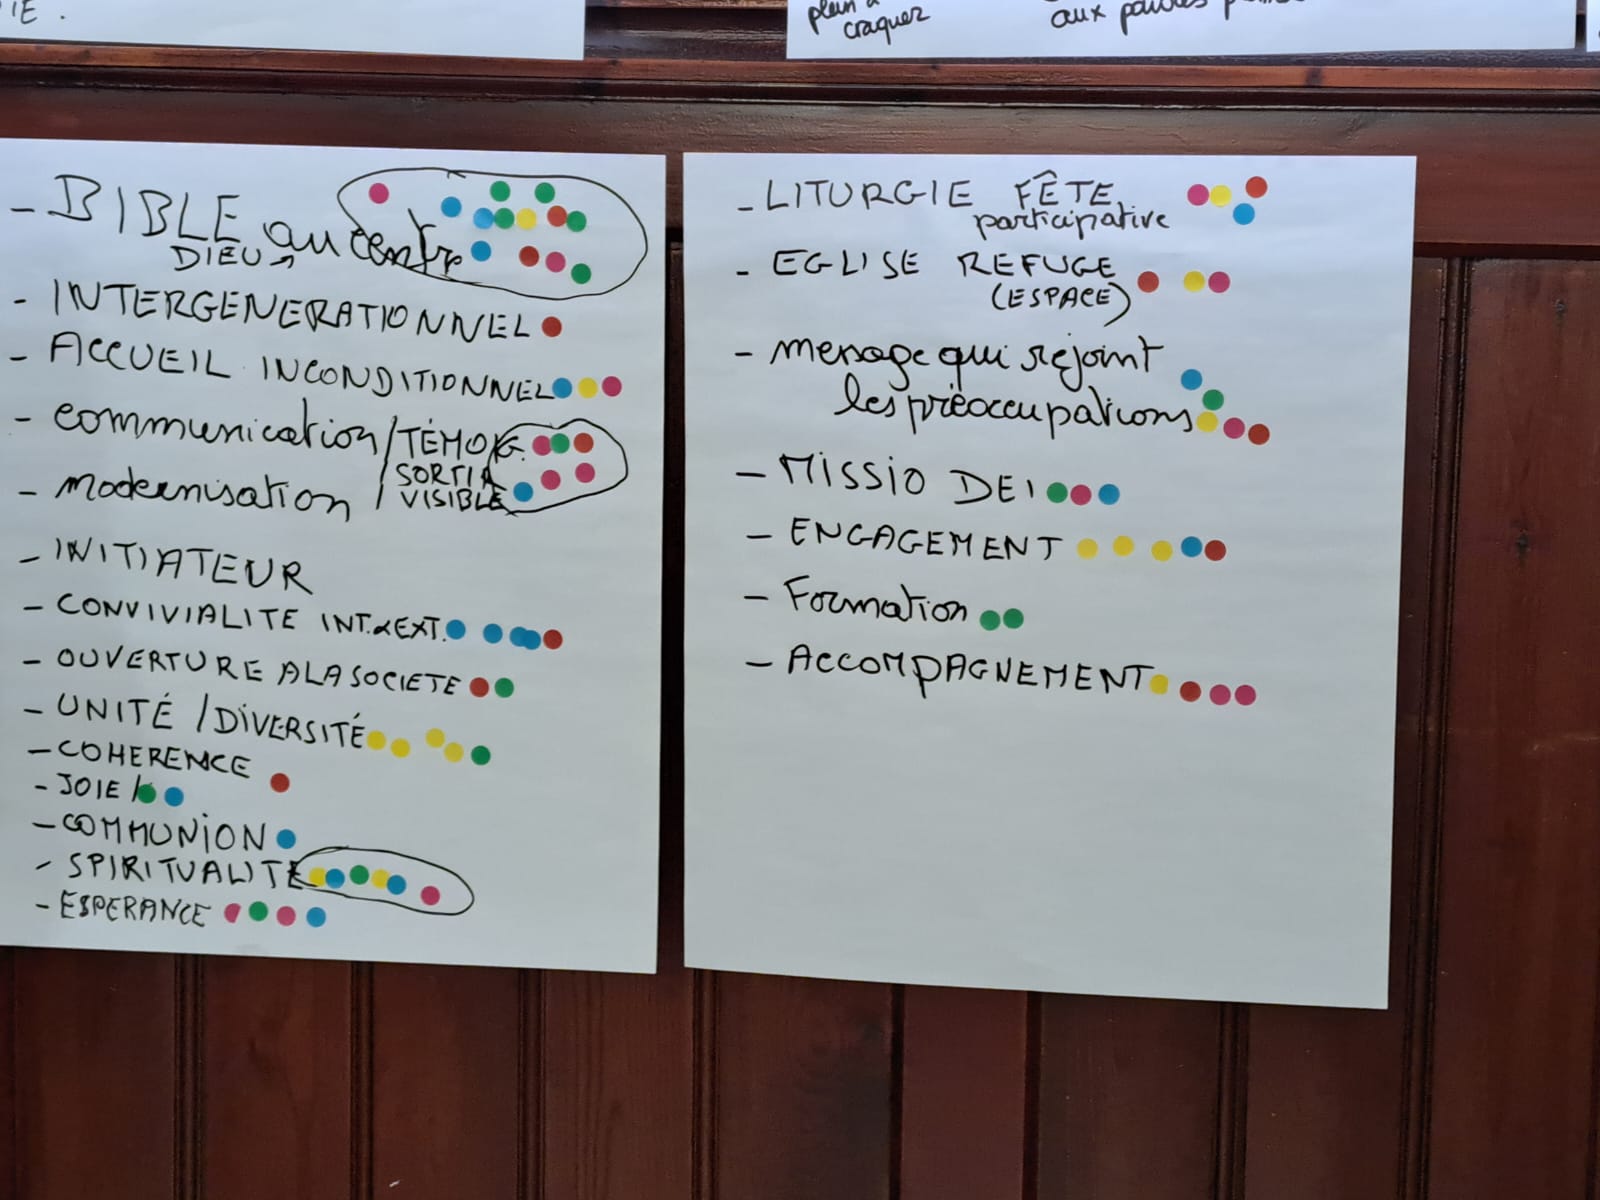 plein à
craquer
aux pauvres
- BIBLE au centre
DIEU
- INTERGENERATIONNEL
- ACCUEIL INCONDITIONNEL
- communication / TÉMOIG.
SORTIR
- modernisation / VISIBLE
- INITIATEUR
- CONVIVIALITE INT. & EXT.
- OUVERTURE A LA SOCIETE
- UNITÉ / DIVERSITÉ
- COHERENCE
- JOIE /
- COMMUNION
- SPIRITUALITE
- ESPERANCE
- LITURGIE FÊTE
participative
- EGLISE REFUGE
(ESPACE)
- message qui rejoint
les préoccupations
- MISSIO DEI
- ENGAGEMENT
- Formation
- ACCOMPAGNEMENT